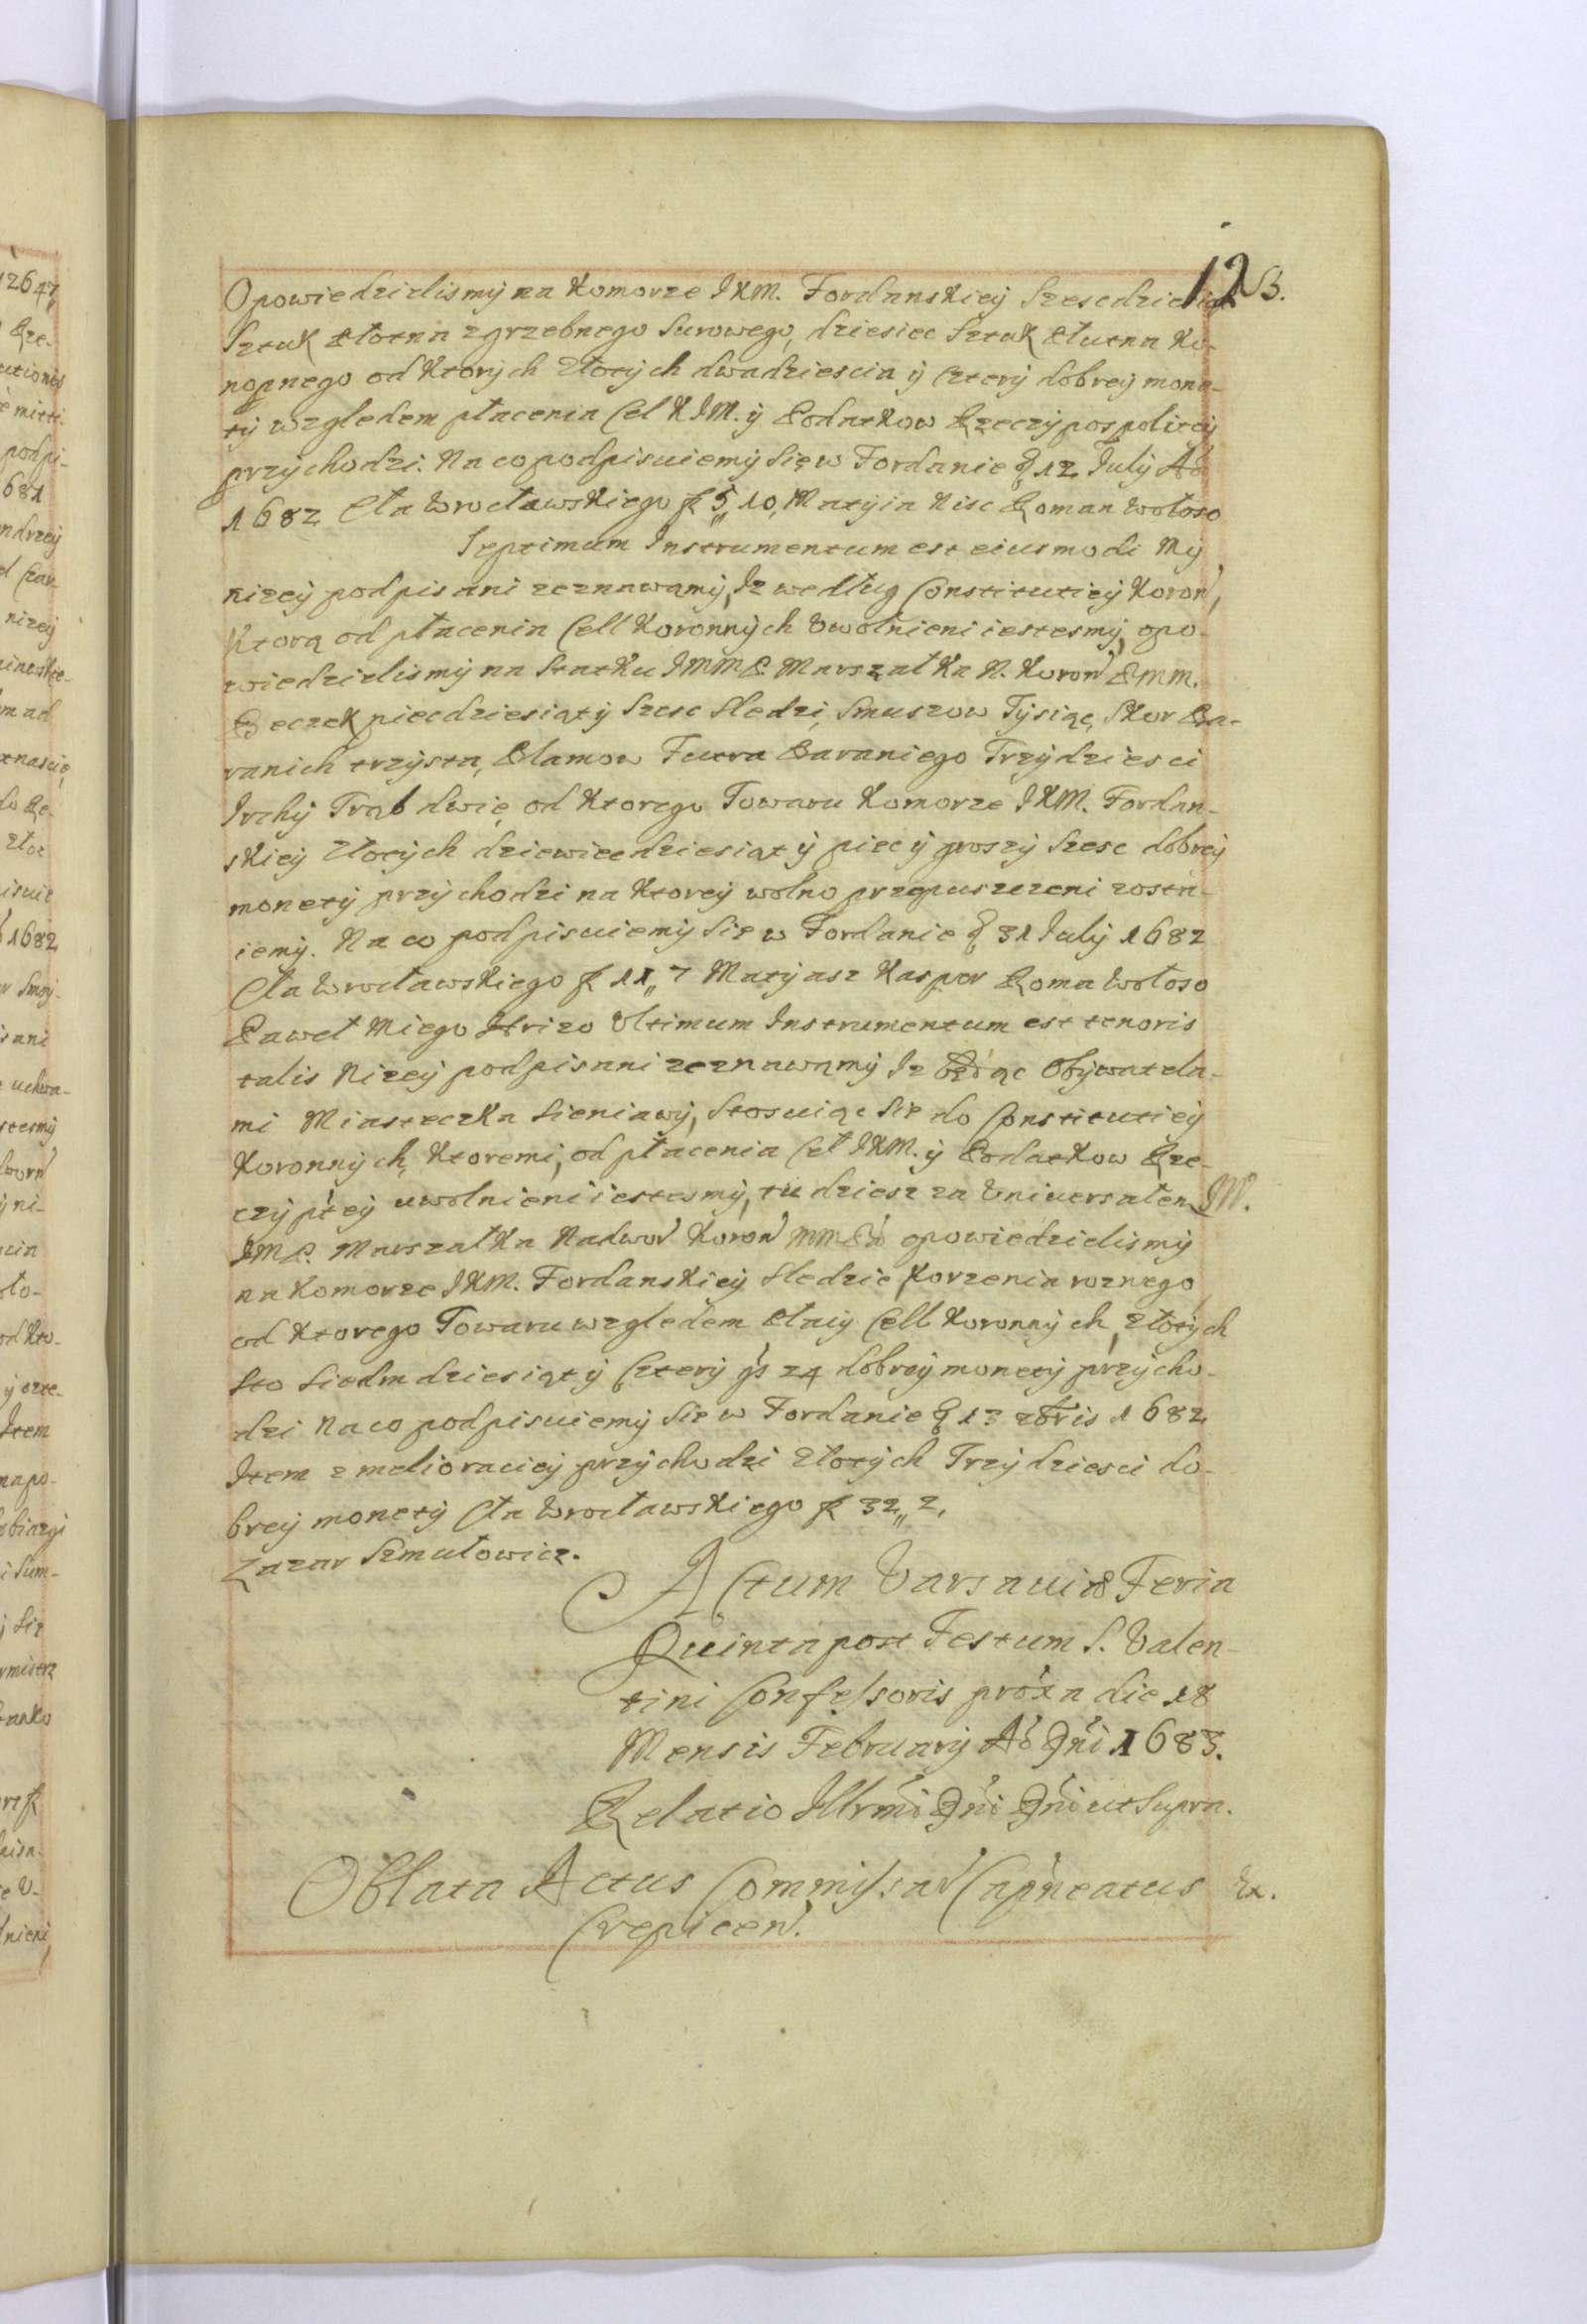 12 B.
Opowiedzielismÿ na Komorze JKM. Fordanskieÿ Szescdziesiąt
Sztuk Płotna zgrzebnego Surowego, dziesiec Sztuk Płutna Ko-
nopnego od Ktorÿch Złotÿch dwadziescia ÿ Czterÿ dobreÿ mone-
tÿ wzgledem płacenia Cel KJM. ÿ Podatkow Rzeczÿpospoliteÿ
przÿchodzi. Na co podpisuiemÿ Się w Fordanie d 12 Julÿ Aō
1682 Cła Wrocławskiego fl 5„10, Matÿia Nisc Roman Wołoso
Septimum Instrumentum est eiusmodi Mÿ
nizeÿ podpisani zeznawamÿ, Iz według Constitutieÿ Koron,
Ktorą od płacenia Cell Koronnÿch Uwolnieni iestesmÿ, opo-
wiedzielismÿ na Statku JMMP. Marszałka N. Koron PMM.
Beczek piecdziesiąt ÿ Szesc Sledzi, Smuszow Tÿsiąc, Skor Ba-
ranich trzÿsta, Błamow Futra Baraniego Trzÿdziesci
Irchÿ Trąb dwię od Ktorego Towaru Komorze JKM. Fordan-
skieÿ Złotÿch dziewiecdziesiąt ÿ piec ÿ groszÿ Szesc dobreÿ
monetÿ przÿchodzi na Ktoreÿ wolno przepuszczeni zosta-
iemÿ. Na co podpisuiemÿ Się w Fordanie d 31 Julÿ 1682
Cła Wrocławskiego fl 11„7 Matÿasz Kasper Roma Wołoso
Paweł Miego Hrizo Ultimum Instrumentum est tenoris
talis Nizeÿ podpisani zeznawamÿ Iz będąc Obÿwatela-
mi Miasteczka Sieniawÿ, Stosuiąc Się do Constitutieÿ
Koronnÿch, Ktoremi, od płacenia Cel JKM. ÿ Podatkow Rze-
czÿ pteÿ uwolnieni iestesmÿ, tudziesz za Universałem JM.
JMP. Marszałka Nadwor Koron MMPa opowiedzielismÿ
na Komorze JKM. Fordanskieÿ Sledzie, Korzenia roznego
od Ktorego Towaru wzgledem Płacÿ Cell Koronnÿch, Złotÿch
Sto Siedmdziesiąt ÿ Czterÿ gs 24 dobreÿ monetÿ przÿcho-
dzi Na co podpisuiemÿ Się w Fordanie d 13 8bris 1682
Item z melioracieÿ przÿchodzi Złotÿch Trzÿdziesci do-
breÿ monetÿ Cła Wrocławskiego fl 32„2,
Lazar Szmułowicz.
Actum Varsaviæ Feria
Quinta post Festum S. Valen-
tini Confessoris proxa die 18
Mensis Februarÿ Aō Dni 1683.
Relatio Illrmi Dni Dni ut Supra.
Oblata Actus Commissar Capneatus Rx.
Crepicen.